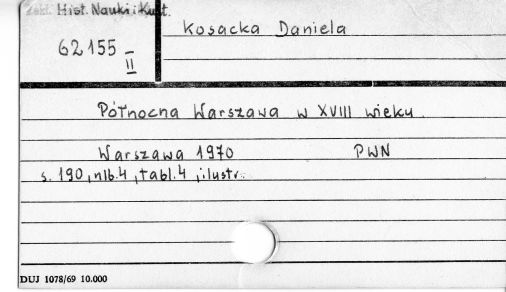 Zakł. Hist. Nauki i Kult.
62155
II
Kosacka Daniela
Północna Warszawa w XVIII wieku.
Warszawa 1970 PWN
s. 190, nlb.4, tabl.4, ilustr.
DUJ 1078/69 10.000